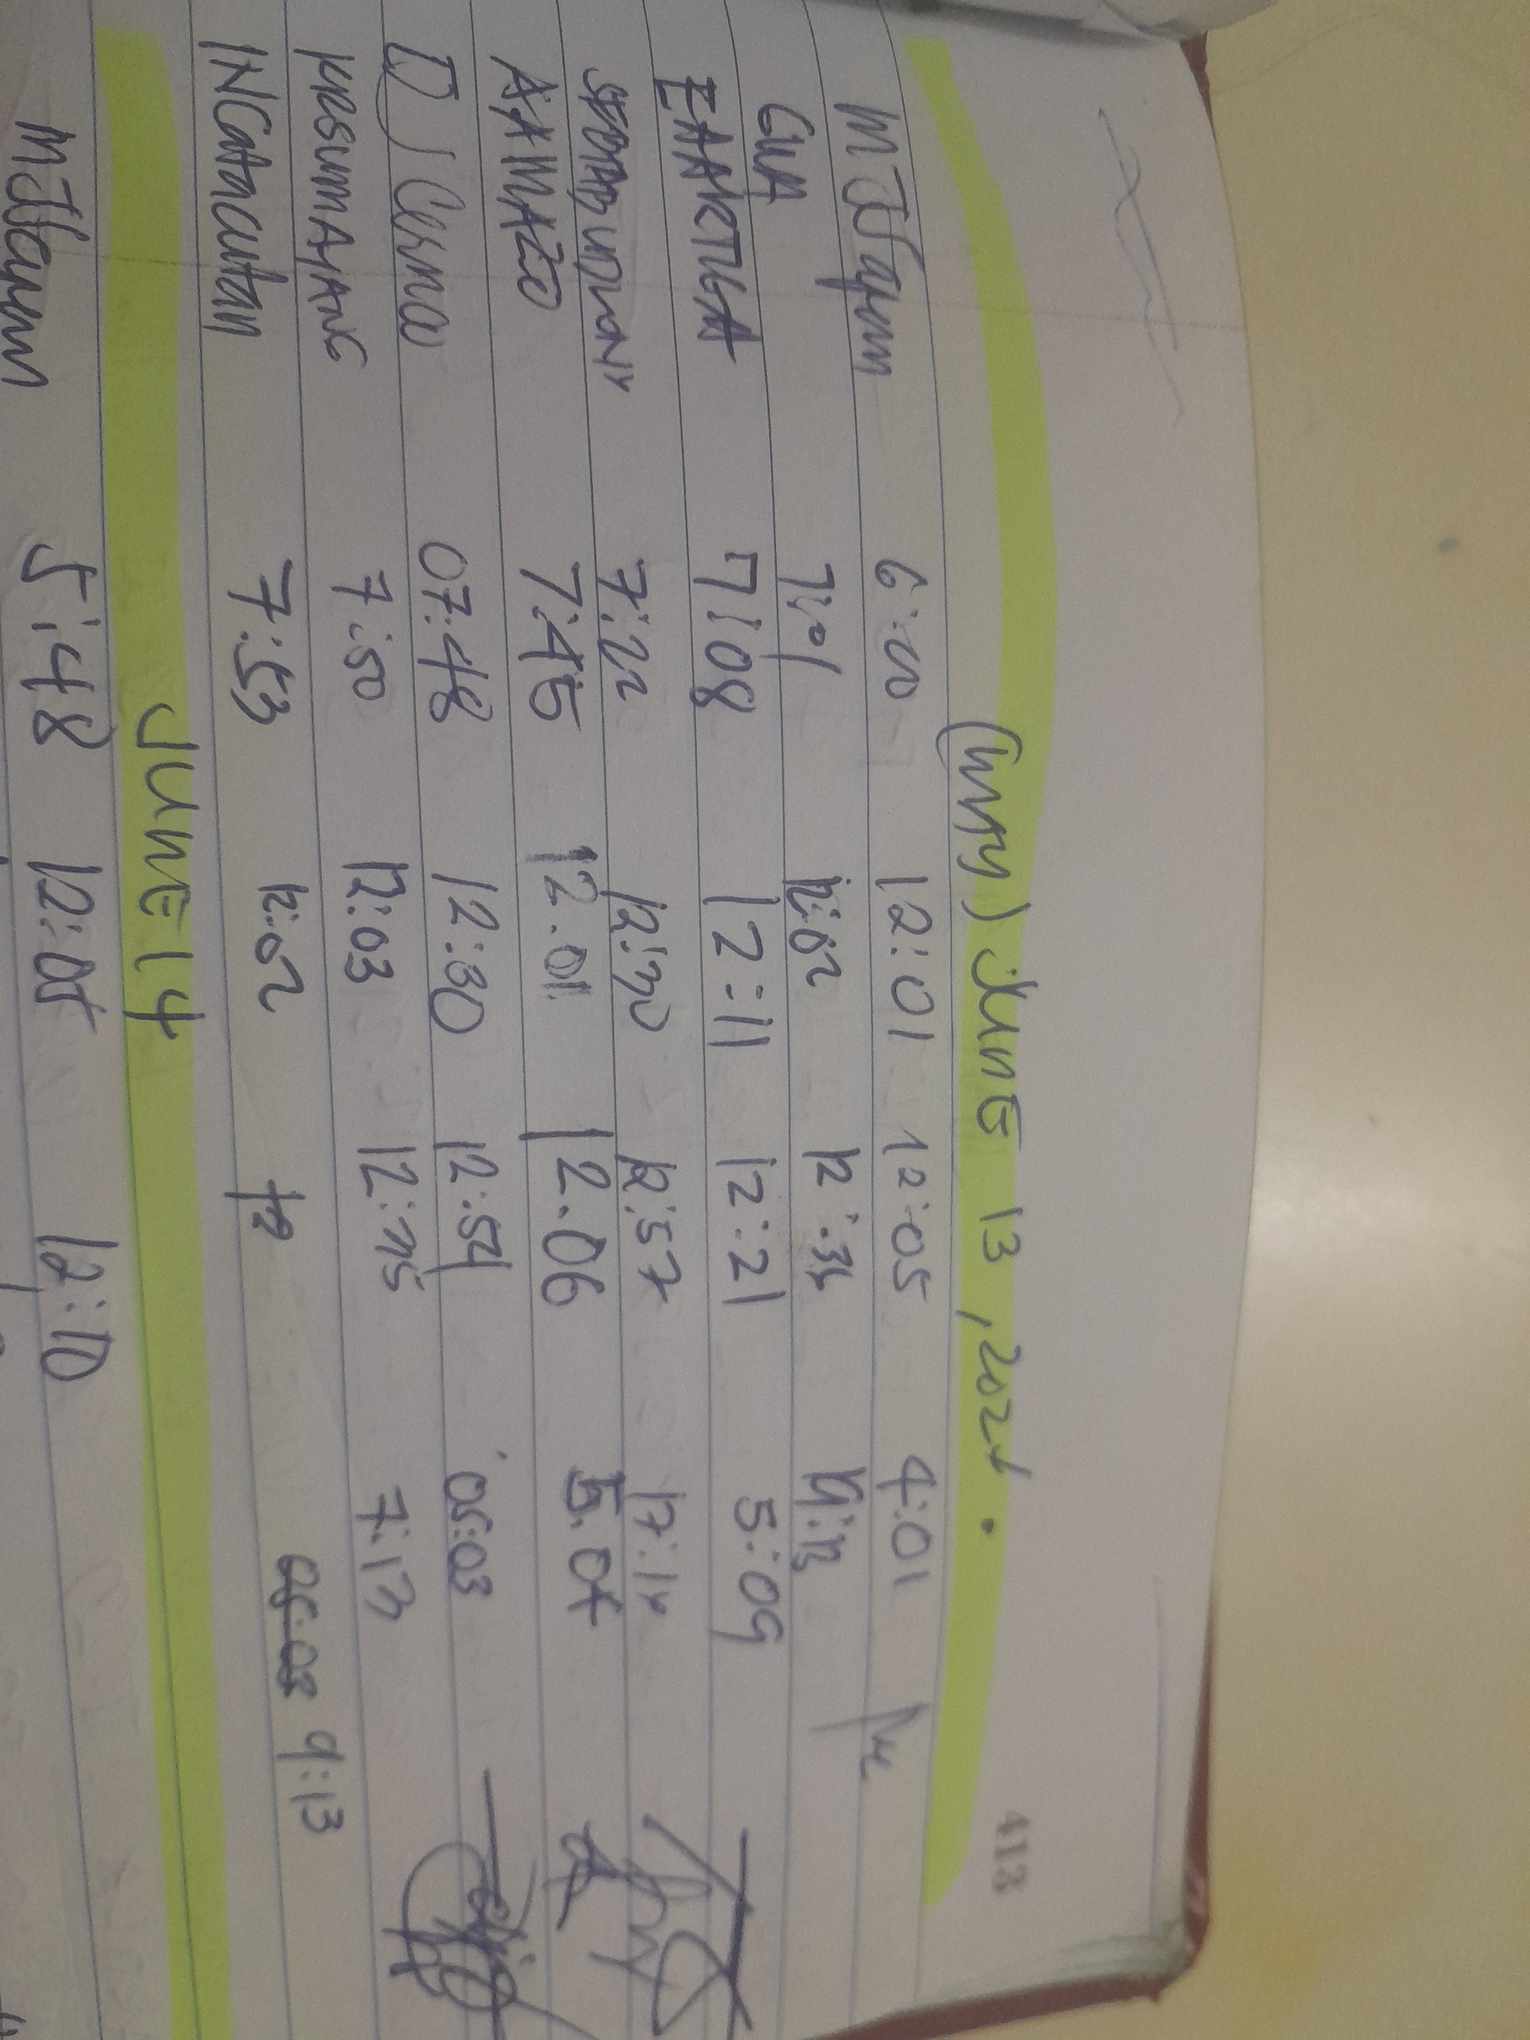 413
JUNE 13, 202
6:00 12:01 12:05 4:01
GHA 7:01 12:02 12:36 4:13
EAARTUGA 7:08 12:11 12:21 5:09
7:22 12:30 12:57 17:14
AAMAZO 7:45 12.01 12.06 5.04
DJ Cerna 07:48 12:30 12:54 05:03
KRSUMAYANG 7:50 12:03 12:15 7:13
INCatacutan 7:53 12:02 12 05:03 9:13
JUNE 14
5:48 12:05 12:10